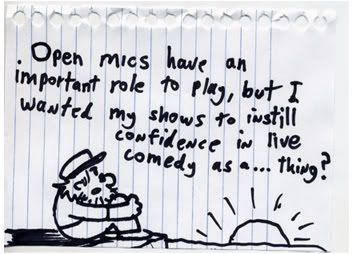 Open mics have an
important role to play, but I
wanted my shows to instill
confidence in live
comedy as a... thing?